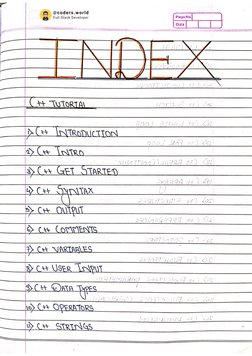 @coders.world
Full Stack Developer
Page No.
Date
INDEX
C++ TUTORIAL
1) C++ INTRODUCTION
2) C++ INTRO
3) C++ GET STARTED
4) C++ SYNTAX
5) C++ OUTPUT
6) C++ COMMENTS
7) C++ VARIABLES
8) C++ USER INPUT
9) C++ DATA TYPES
10) C++ OPERATORS
11) C++ STRINGS